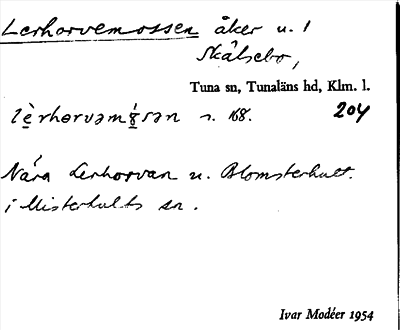 Lerhorvemossen åker u. 1
Skälsebo,
Tuna sn, Tunaläns hd, Klm. l.
lèrhorvəmósən s. 168. 204
Nära Lerhorvan u. Blomsterhult.
i Misterhults sn.
Ivar Modéer 1954